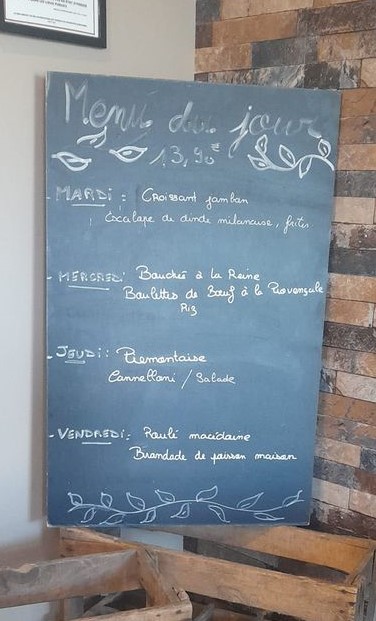 Menu du jour
13,90€
- MARDI : Croissant jambon
Escalope de dinde milanaise, frites
- MERCREDI: Bouchée à la Reine
Boulettes de Bœuf à la Provençale
Riz
- JEUDI : Piemontaise
Cannelloni / Salade
- VENDREDI : Roulé macédoine
Brandade de poisson maison